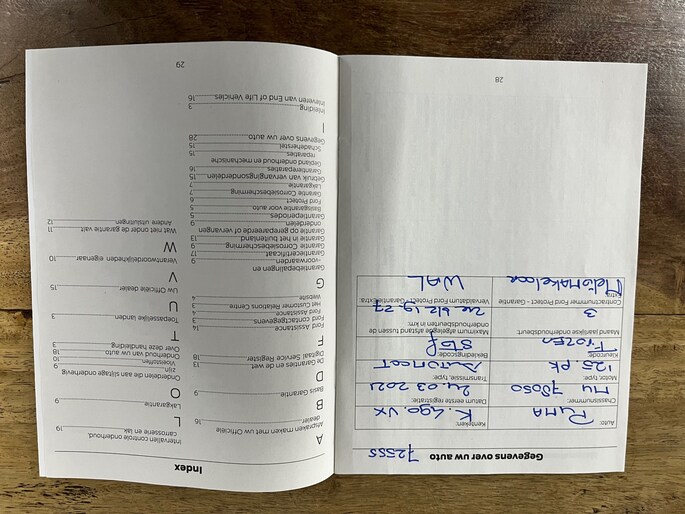 Gegevens over uw auto 72555
Auto: PUMA
Kenteken:
Chassisnummer: MU 78050
Datum eerste registratie: 24.03 2021
Motor, type: 125.PK
Transmissie, type:
Kleurcode:
Bekledingscode: Stof
Maand jaarlijkse onderhoudsbeurt: 3
Maximum afgelegde afstand tussen de
Contractnummer Ford Protect - Garantie Extra:
Vervaldatum Ford Protect - Garantie Extra: WAL
28
Index
A
Afspraken maken met uw Officiële dealer 16
B
Basis Garantie 9
D
De Garanties en de wet 13
Digitaal Service Register 18
F
Ford Assistance 14
Ford contactgegevens 4
Ford Assistance 3
Het Customer Relations Centre 4
Website 4
G
Garantiebepalingen en -voorwaarden 9
Garantiecertificaat 17
Garantie Corrosiebescherming 9
Garantie in het buitenland 13
Garantie op gerepareerde of vervangen onderdelen 9
Garantieperiodes 5
Basisgarantie voor auto 5
Ford Protect 6
Garantie Corrosiebescherming 7
Lakgarantie 7
Gebruik van vervangingsonderdelen 15
Garantiereparaties 16
Gepland onderhoud en mechanische reparaties 15
Schadeherstel 15
Gegevens over uw auto 28
I
Inleiding 3
Inleveren van End of Life Vehicles 16
Intervallen controle onderhoud, carrosserie en lak 19
L
Lakgarantie 9
O
Onderdelen die aan slijtage onderhevig zijn 9
Vloeistoffen 10
Onderhoud van uw auto 18
Over deze handleiding 3
T
Toepasselijke landen 3
U
Uw Officiële dealer 15
V
Verantwoordelijkheden eigenaar 10
W
Wat niet onder de garantie valt 11
Andere uitsluitingen 12
29